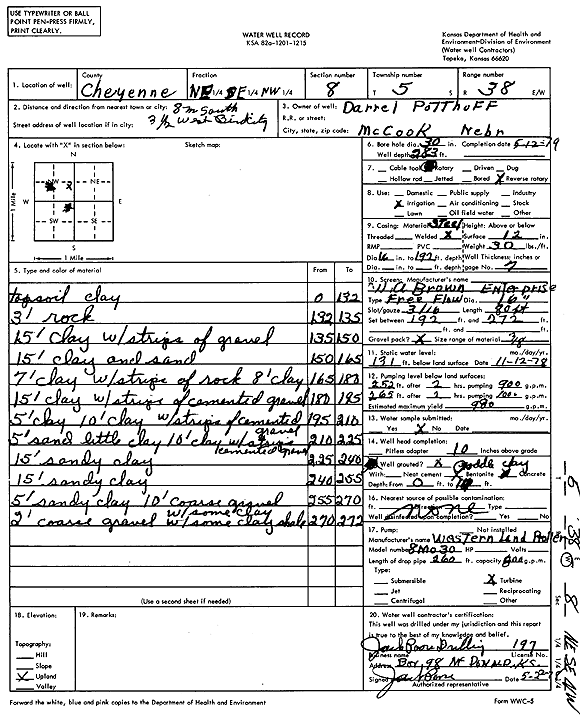 USE TYPEWRITER OR BALL
POINT PEN-PRESS FIRMLY,
PRINT CLEARLY.
WATER WELL RECORD
KSA 82a-1201-1215
Kansas Department of Health and
Environment-Division of Environment
(Water well Contractors)
Topeka, Kansas 66620
1. Location of well: County Cheyenne Fraction NE 1/4 SE 1/4 NW 1/4 Section number 8 Township number T 5 S Range number R 38 E/W
2. Distance and direction from nearest town or city: 8m South
3 1/2 West Bird City
Street address of well location if in city:
3. Owner of well: Darrel Potthoff
R.R. or street:
City, state, zip code: McCook Nebr
4. Locate with "X" in section below: Sketch map:
N
NW NE
W E
SW SE
S
1 Mile
1 Mile
6. Bore hole dia. 30 in. Completion date 5-12-79
Well depth 283 ft.
7. Cable tool Rotary Driven Dug
Hollow rod Jetted Bored X Reverse rotary
8. Use: Domestic Public supply Industry
X Irrigation Air conditioning Stock
Lawn Oil field water Other
9. Casing: Material Steel Height: Above or below
Threaded Welded X Surface 12 in.
RMP PVC Weight 30 lbs./ft.
Dia. 16 in. to 192 ft. depth Wall Thickness: inches or
Dia. in. to ft. depth gage No. 7
5. Type and color of material From To
topsoil clay 0 132
3' rock 132 135
15' clay w/strips of gravel 135 150
15' clay and sand 150 165
7' clay w/strips of rock 8' clay 165 180
15' clay w/strips of cemented gravel 180 195
5' clay 10' clay w/strips of cemented gravel 195 210
5' sand little clay 10' clay w/strips cemented gravel 210 225
15' sandy clay 225 240
15' sandy clay 240 255
5' sandy clay 10' coarse gravel w/some clay 255 270
2' coarse gravel w/some clay shale 270 272
(Use a second sheet if needed)
10. Screen: Manufacturer's name
W A Brown Enterprise
Type Free Flow Dia. 16"
Slot/gauze 3/16 Length 80 ft
Set between 192 ft. and 272 ft.
ft. and ft.
Gravel pack? X Size range of material 3/8
11. Static water level: mo./day/yr.
131 ft. below land surface Date 11-12-78
12. Pumping level below land surfaces:
252 ft. after 2 hrs. pumping 900 g.p.m.
265 ft. after 2 hrs. pumping 1000 g.p.m.
Estimated maximum yield 980 g.p.m.
13. Water sample submitted: mo./day/yr.
Yes X No Date
14. Well head completion:
Pitless adapter 10 Inches above grade
15. Well grouted? X puddle clay
With: Neat cement Bentonite Concrete
Depth: From 0 ft. to 10 ft.
16. Nearest source of possible contamination:
ft. Direction None Type
Well disinfected upon completion? Yes No
17. Pump: Not installed
Manufacturer's name Western Land Roller
Model number 8M030 HP Volts
Length of drop pipe 260 ft. capacity 900 g.p.m.
Type:
Submersible X Turbine
Jet Reciprocating
Centrifugal Other
18. Elevation:
Topography:
Hill
Slope
X Upland
Valley
19. Remarks:
20. Water well contractor's certification:
This well was drilled under my jurisdiction and this report
is true to the best of my knowledge and belief.
Jack Poore Drilling 197
Business name License No.
Address Box 98 McDonald, KS.
Signed Jack Poore Date
Authorized representative
Forward the white, blue and pink copies to the Department of Health and Environment
Form WWC-5
5 38 W Sec 8 NE SE NW